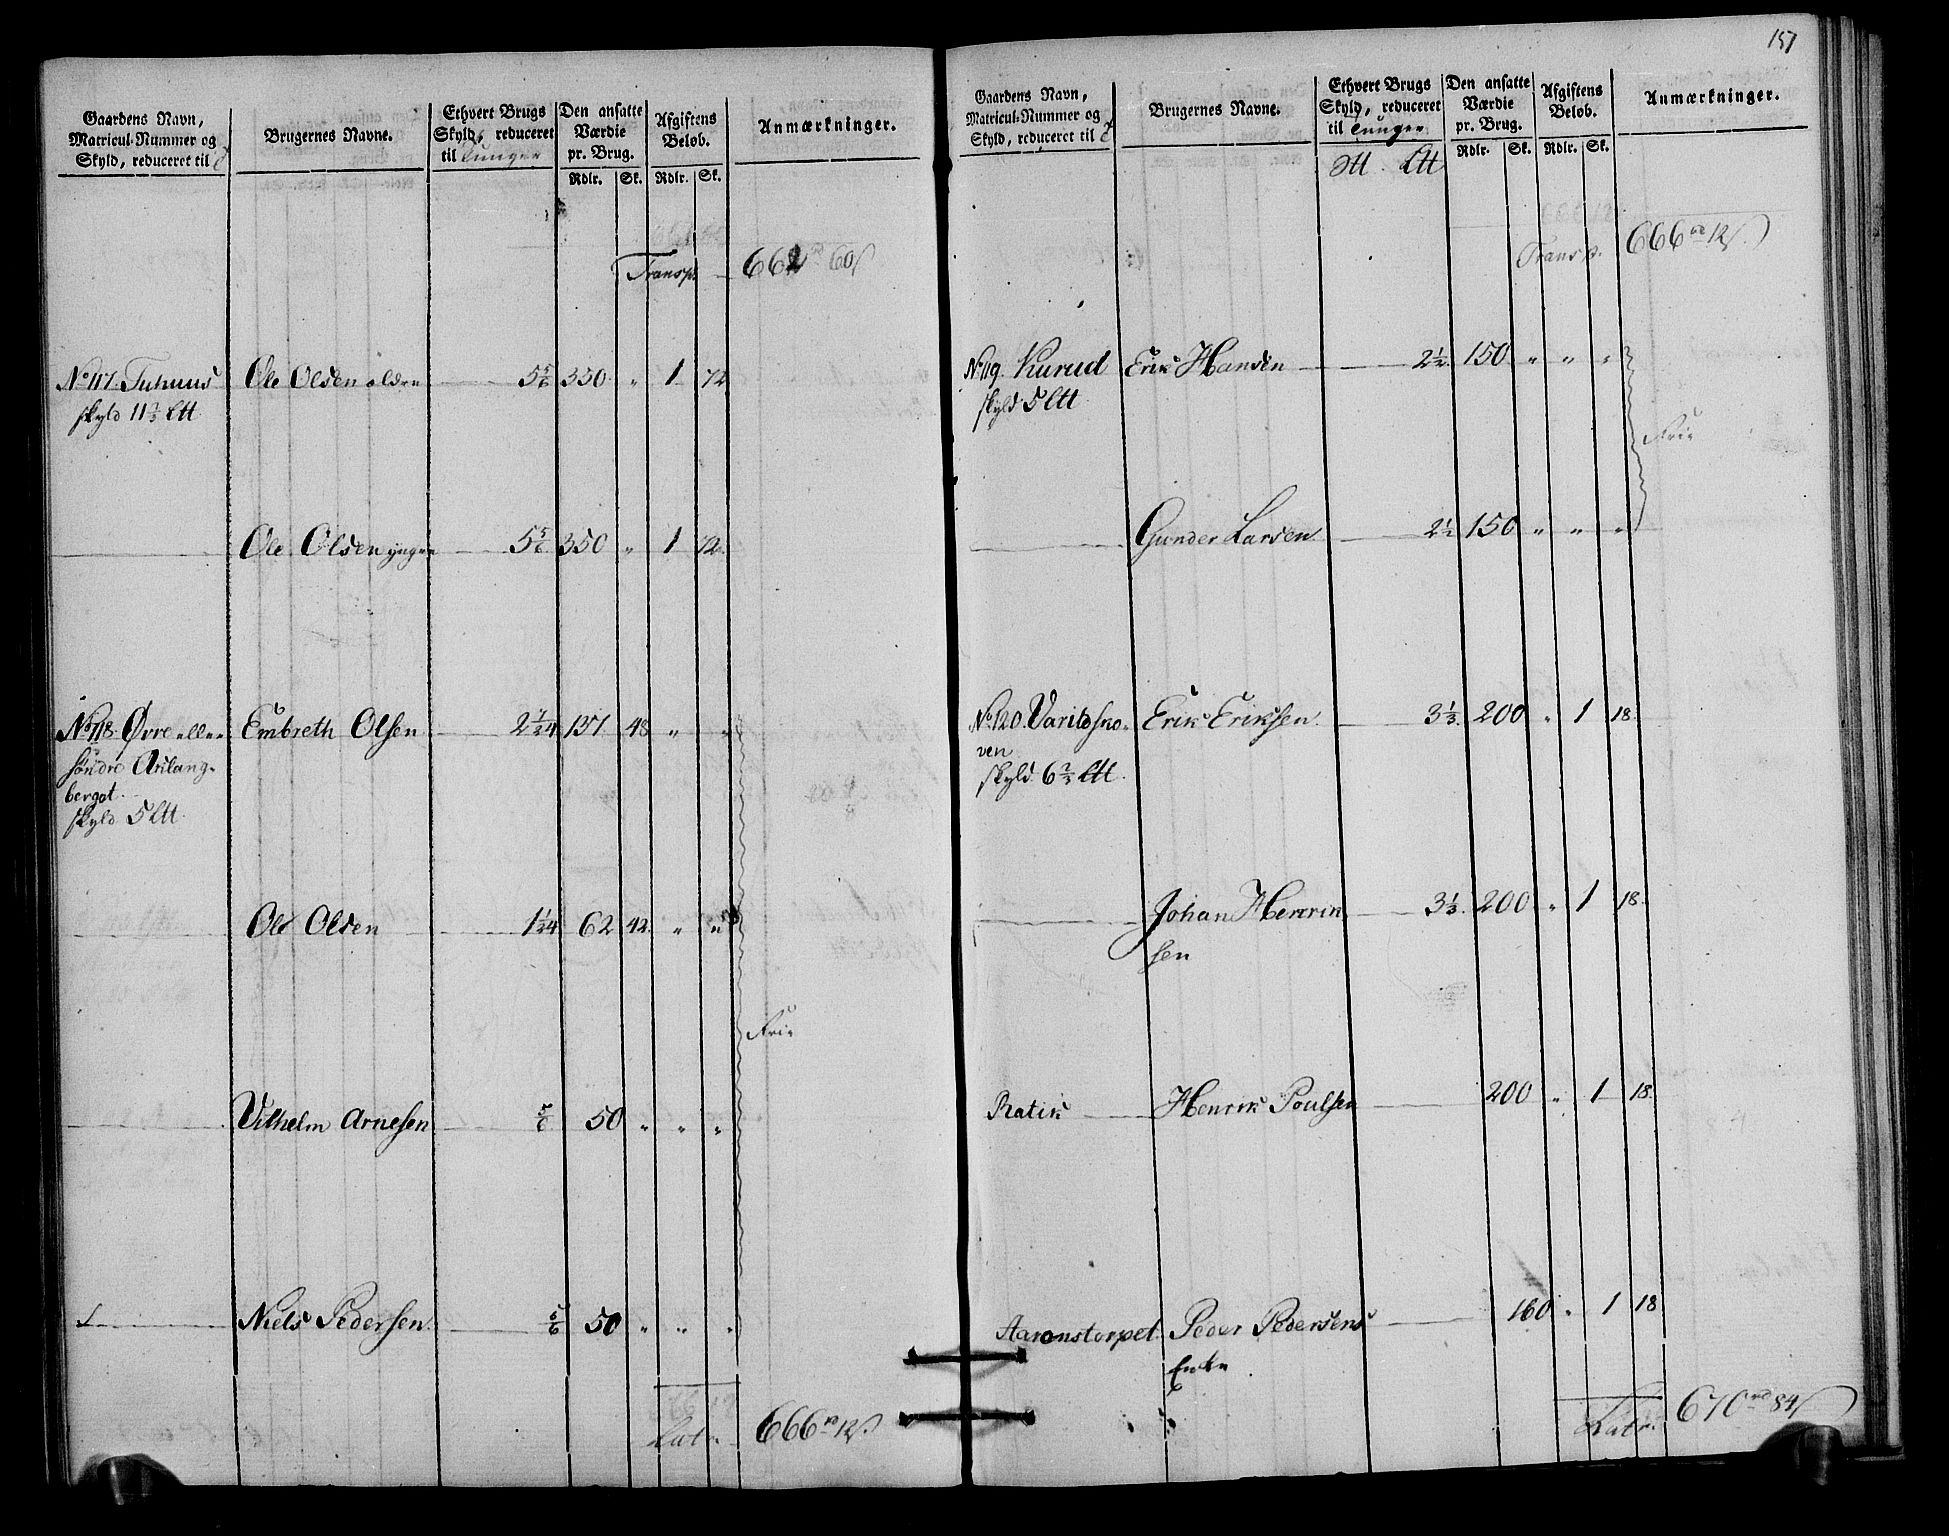 Gaardens Navn,
Matricul-Nummer og
Skyld, reduceret til
Brugernes Navne.
Ethvert Brugs
Skyld, reduceret
til Tunger
Den ansatte
Værdie
pr. Brug.
Rdlr. Sk.
Afgiftens
Beløb.
Rdlr. Sk.
Anmærkninger.
Transp. 662 rd 60 s
No 117. Ole Olsen ældre 5 5/6 350 " 1 72
skyld 11 2/3 Ltt
Ole Olsen yngre 5 5/6 350 " 1 72
No 118. Øvre eller Embreth Olsen 2 7/24 137 48 " "
søndre
berget
skyld 5 Ltt
Ole Olsen 1 1/24 62 42 " "
Frie
Vilhelm Arnesen 5/6 50 " " "
Niels Pedersen 5/6 50 " " "
Latr. 666 rd 12 s
157
Gaardens Navn,
Matricul-Nummer og
Skyld, reduceret til
Brugernes Navne.
Ethvert Brugs
Skyld, reduceret
til Tunger
Ltt
Den ansatte
Værdie
pr. Brug.
Rdlr. Sk.
Afgiftens
Beløb.
Rdlr. Sk.
Anmærkninger.
Transp. 666 rd 12 s
No 119. Kurud Erik Hansen 2 1/2 150 " " "
skyld 5 Ltt
Frie
Gunder Larsen 2 1/2 150 " " "
No 120. Varitsko- Erik Eriksen 3 1/3 200 " 1 18
ven
skyld 6 2/3 Ltt
Johan Henrik 3 1/3 200 " 1 18
sen
Ratik Henrik Poulsen 200 " 1 18
Aaronstorpet Peder Pedersens 160 " 1 18
Enke
Latr. 670 rd 84 s